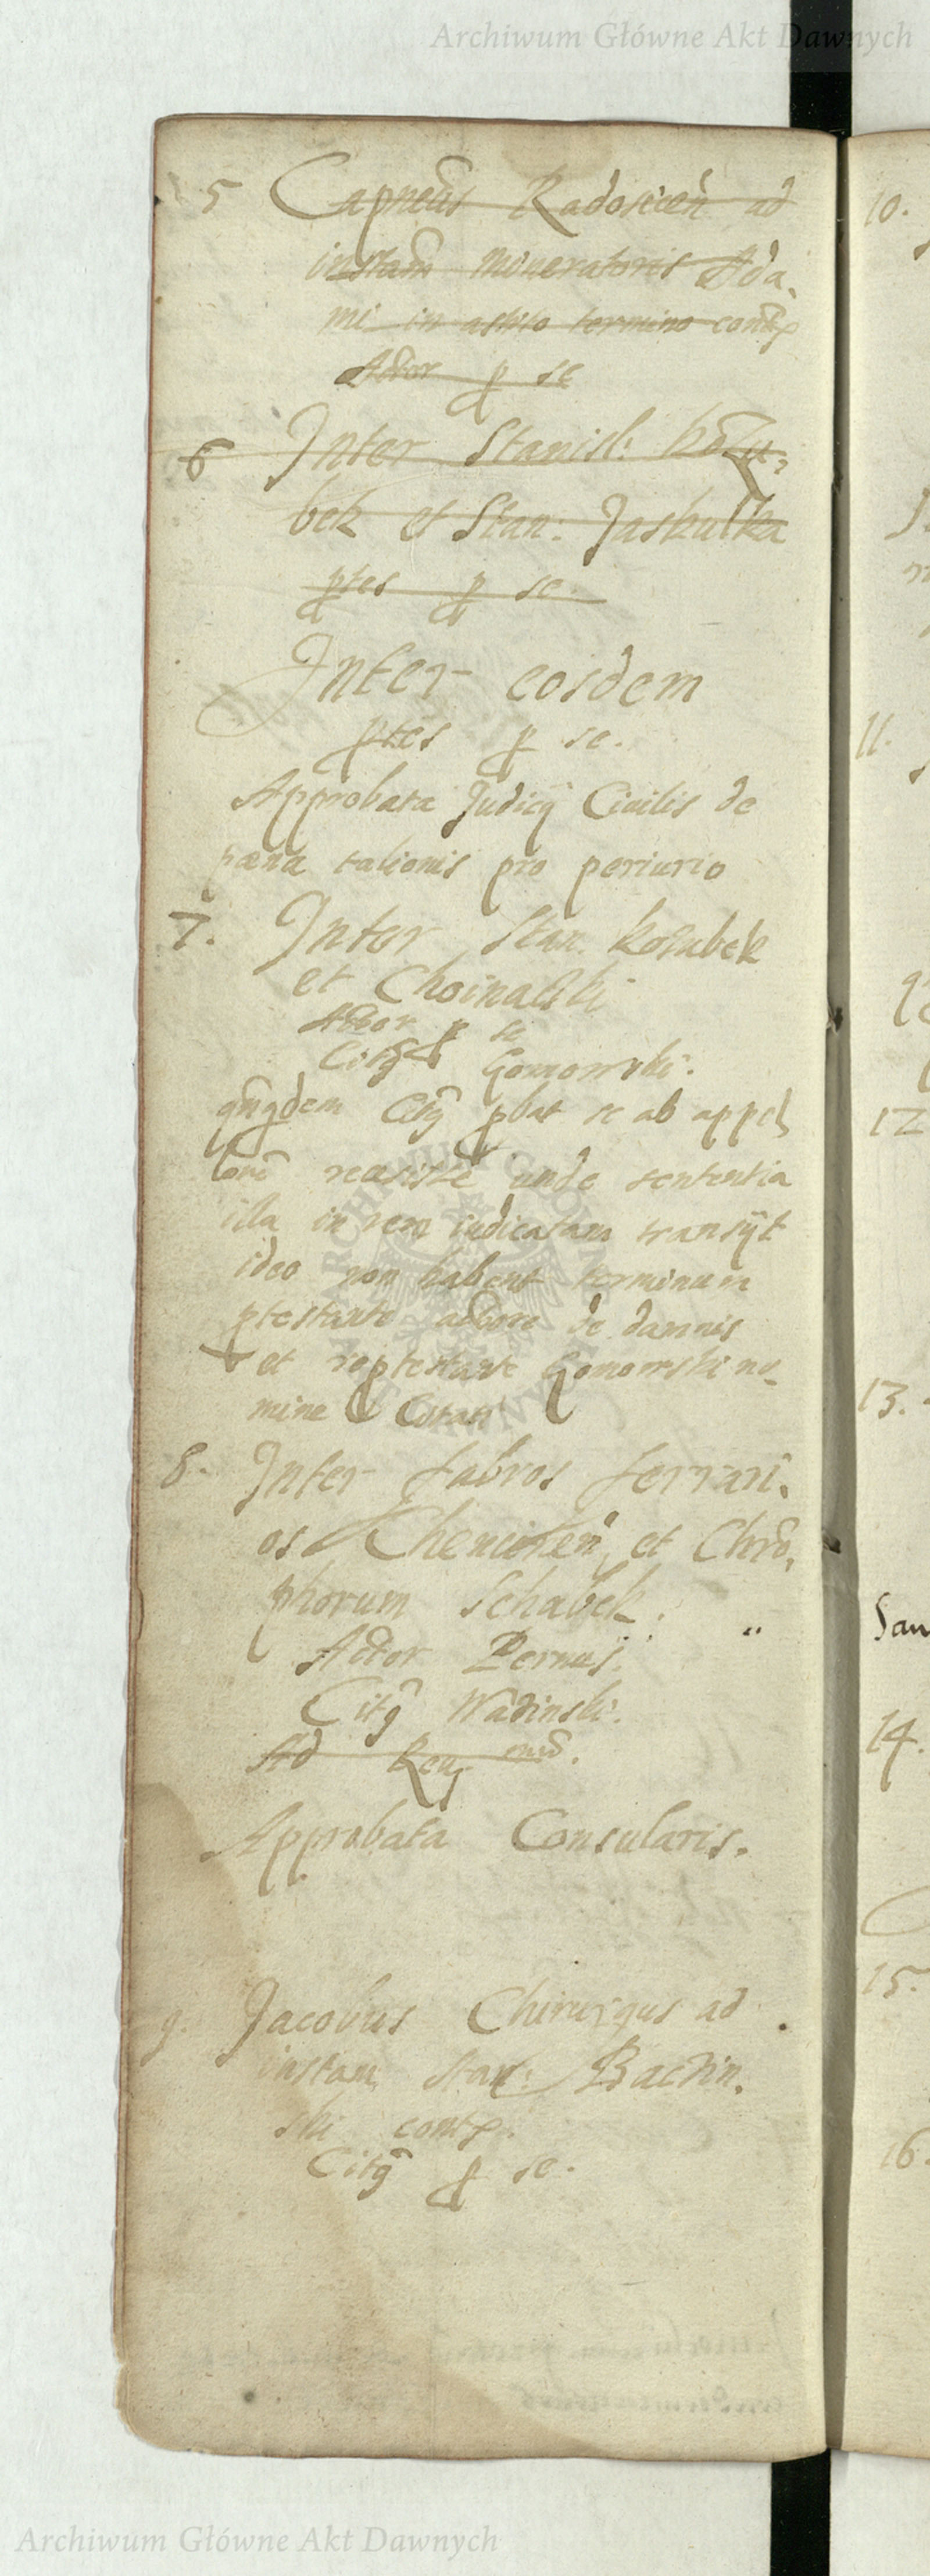 Archiwum Główne Akt Dawnych
5 Capneus Radosicen ad
instam mineratoris Ada-
mi in astito termino cont
Actor p se
6 Inter Stanisl: Kozu-
bek et Stan: Jaskulka
ptes p se.
Inter eosdem
ptes p se.
Approbata Judicÿ Ciuilis de
pæna talionis pro periurio
7. Inter Stan. Kozubek
et Choinalski
Actor p se
Citq Gomowski.
Citq pbat se ab appel
lone unde sententia
illa in rem iudicatam transÿt
ideo non habent terminum
ptestante actore de damnis
et reptestante Gomowski no-
mine Citati
8. Inter fabros ferrari-
os Chencinen et Chro-
phorum Schabek.
Actor Pernus.
Citq Wadinski.
Ad
Approbata Consularis.
9. Jacobus Chirurgus ad
instam Stan: Bactin-
ski cont.
Citq p se.
10.
11.
12
13.
San
14.
15.
16.
Archiwum Główne Akt Dawnych